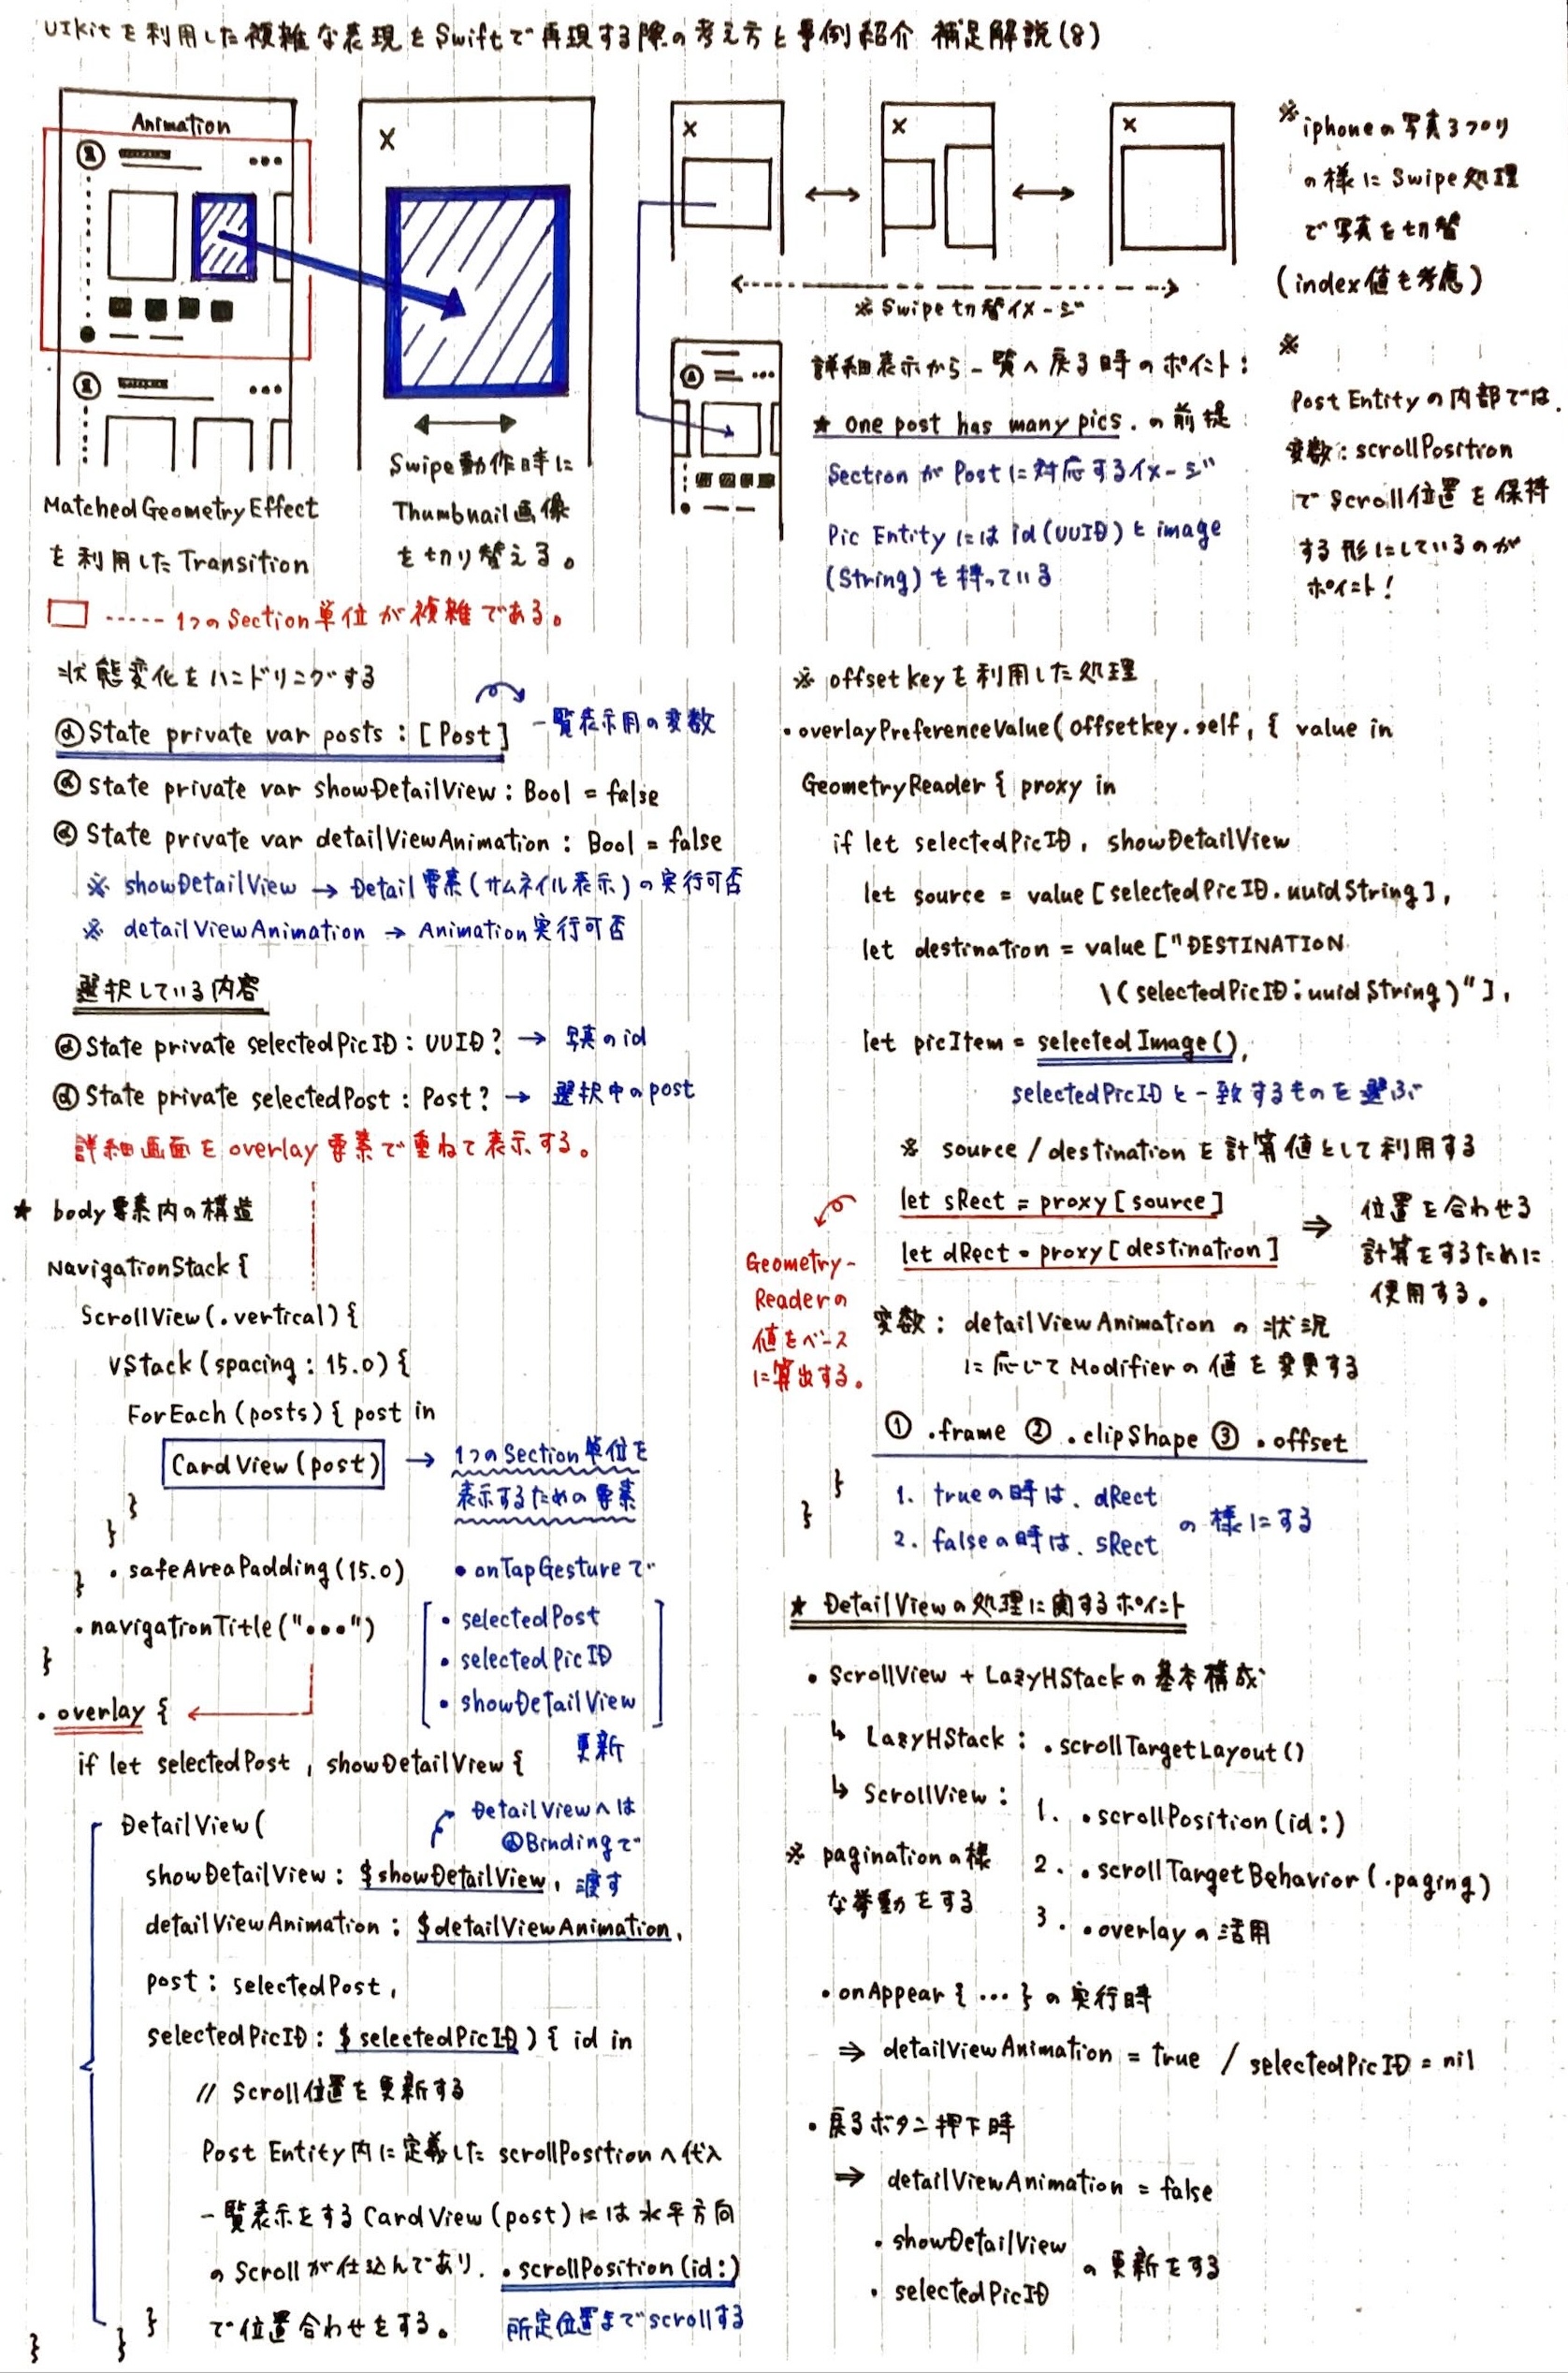 UIKitを利用した複雑な表現をSwiftで再現する際の考え方と事例紹介 補足解説(8)
Animation
MatchedGeometryEffect
を利用したTransition
----- 1つのSection単位が複雑である。
×
Swipe動作時に
Thumbnail画像
を切り替える。
×
×
×
※Swipe切替イメージ
※iphoneの写真ろつのり
の様にSwipe処理
で写真を切替
(index値も考慮)
詳細表示から一覧へ戻る時のポイント:
★ One post has many pics. の前提
SectionがPostに対応するイメージ
Pic Entityにはid(UUID)とimage
(String)を持っている
※
Post Entityの内部では、
変数:scrollPosition
でScroll位置を保持
する形にしているのが
ポイント!
状態変化をハンドリングする
@State private var posts : [Post]
一覧表示用の変数
@State private var showDetailView : Bool = false
@State private var detailViewAnimation : Bool = false
※ showDetailView → Detail要素(サムネイル表示)の実行可否
※ detailViewAnimation → Animation実行可否
選択している内容
@State private selectedPicID : UUID? → 写真のid
@State private selectedPost : Post? → 選択中のpost
詳細画面をoverlay要素で重ねて表示する。
★ body要素内の構造
NavigationStack {
ScrollView(.vertical) {
VStack(spacing : 15.0) {
ForEach(posts) { post in
CardView(post) → 1つのSection単位を
表示するための要素
}
}
} .safeAreaPadding(15.0)
.navigationTitle("•••")
}
•onTapGestureで
• selectedPost
• selectedPicID
• showDetailView
更新
.overlay {
if let selectedPost , showDetailView {
DetailView(
DetailViewへは
@Bindingで
渡す
showDetailView : $showDetailView ,
detailViewAnimation : $detailViewAnimation ,
post : selectedPost ,
selectedPicID : $selectedPicID ) { id in
// Scroll位置を更新する
Post Entity内に定義したscrollPositionへ代入
一覧表示をするCardView(post)には水平方向
のScrollが仕込んであり、.scrollPosition(id:)
で位置合わせをする。
所定位置までscrollする
}
}
}
※ offsetkeyを利用した処理
.overlayPreferenceValue(Offsetkey.self , { value in
GeometryReader { proxy in
if let selectedPicID , showDetailView
let source = value[selectedPicID.uuidString] ,
let destination = value["DESTINATION
\(selectedPicID.uuidString)"] ,
let picItem = selectedImage() ,
selectedPicIDと一致するものを選ぶ
※ source / destination を計算値として利用する
let sRect = proxy[source]
let dRect = proxy[destination]
⇒ 位置を合わせる
計算をするために
使用する。
Geometry-
Readerの
値をベース
に算出する。
変数: detailViewAnimation の状況
に応じてModifierの値を変更する
① .frame ② .clipShape ③ .offset
1. trueの時は、dRect
2. falseの時は、sRect
の様にする
}
}
★ DetailViewの処理に関するポイント
• ScrollView + LazyHStackの基本構成
↳ LazyHStack : .scrollTargetLayout()
↳ ScrollView :
1. .scrollPosition(id:)
2. .scrollTargetBehavior(.paging)
3. .overlayの活用
※ paginationの様
な挙動をする
•onAppear { ••• } の実行時
⇒ detailViewAnimation = true / selectedPicID = nil
• 戻るボタン押下時
⇒ detailViewAnimation = false
• showDetailView
• selectedPicID
の更新をする